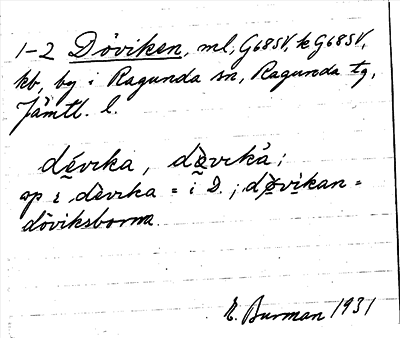 1-2 Döviken, ml, G68SV, k G68SV,
kb, by i Ragunda sn, Ragunda tg,
Jämtl. l.
dévika, døvikà;
op i dèvika = i D.; døvikan =
döviksborna.
E. Burman 1931